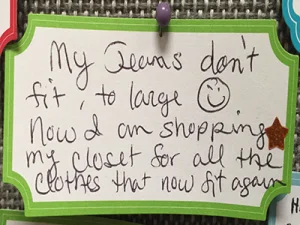 My Jeans don't
fit, to large ☺
Now I am shopping
my closet for all the
clothes that now fit again